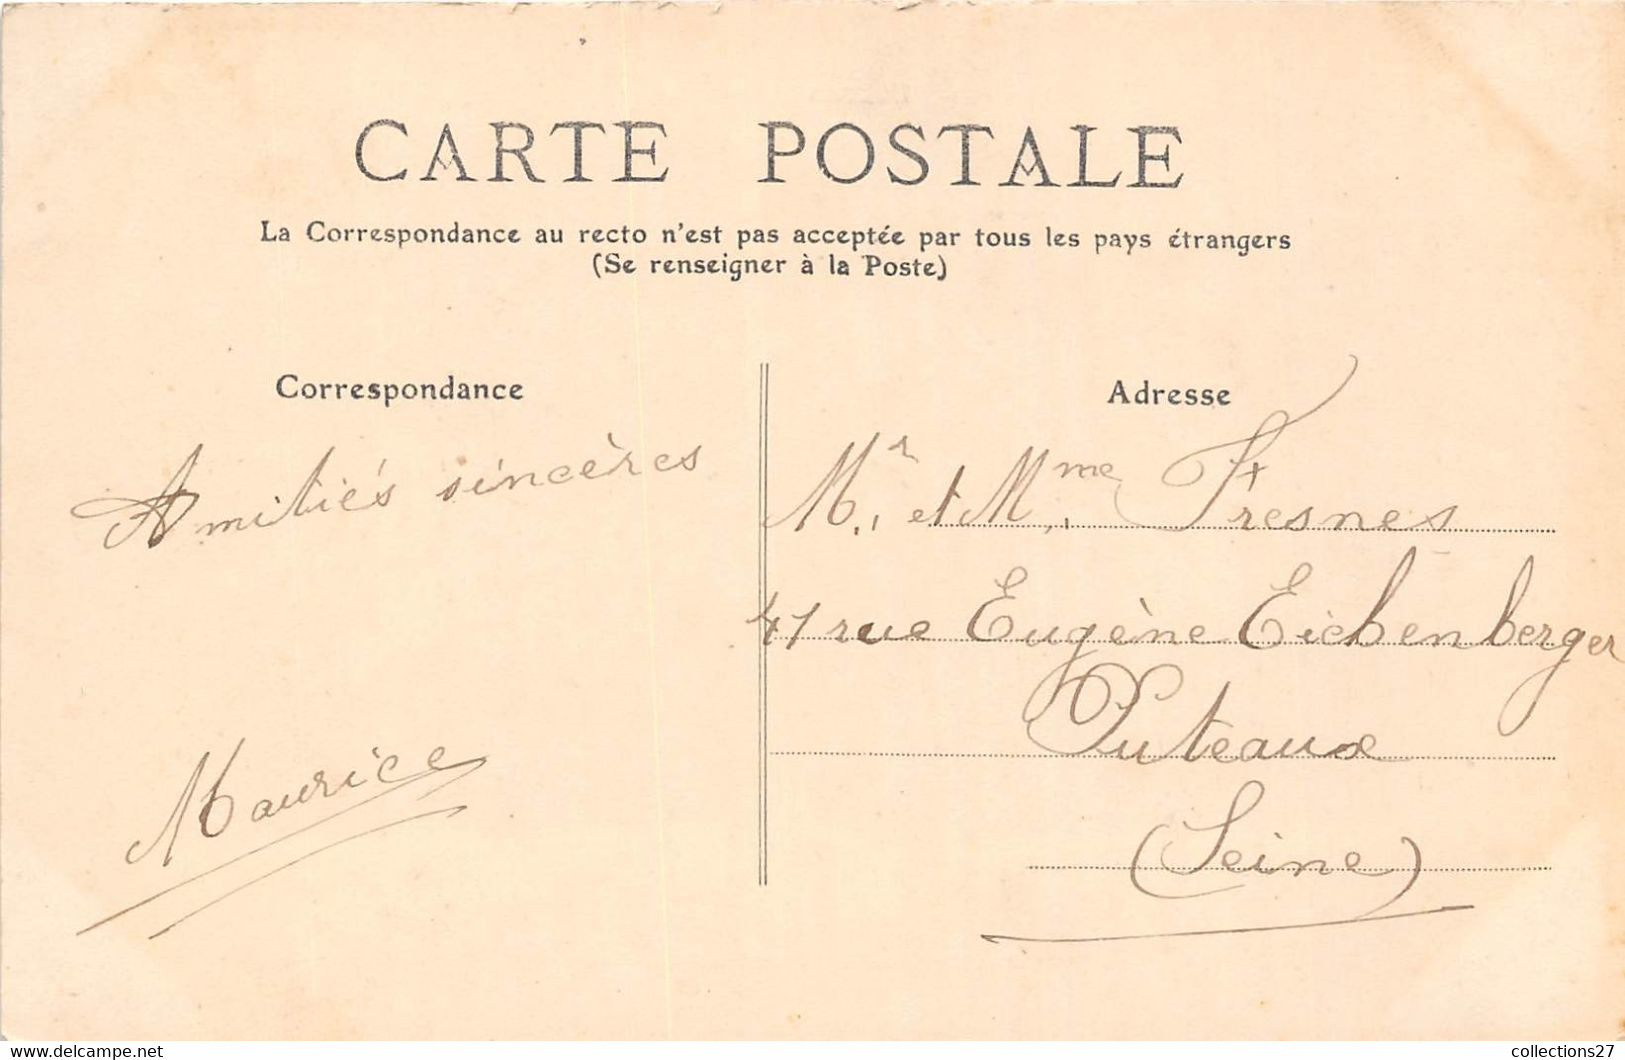 CARTE POSTALE
La Correspondance au recto n'est pas acceptée par tous les pays étrangers
(Se renseigner à la Poste)
Correspondance
Amitiés sincères
Maurice
Adresse
Mr. et Mme. Fresnes
41 rue Eugène Eichenberger
Puteaux
(Seine)
collections27